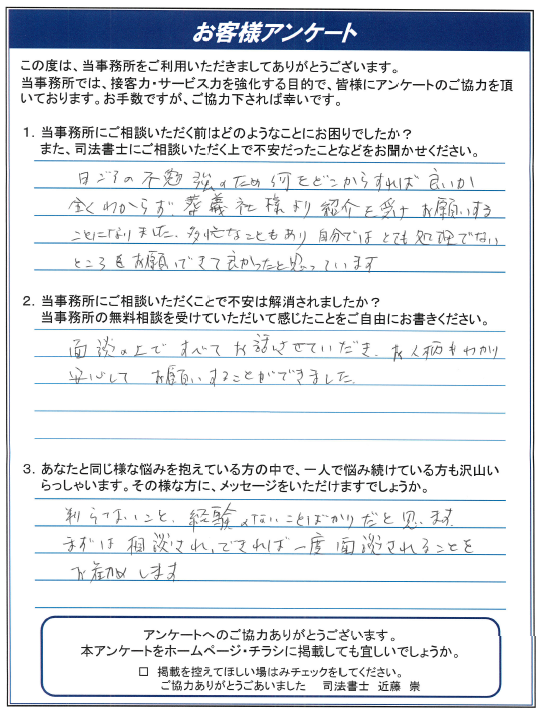 お客様アンケート
この度は、当事務所をご利用いただきましてありがとうございます。
当事務所では、接客力・サービス力を強化する目的で、皆様にアンケートのご協力を頂
いております。お手数ですが、ご協力下されば幸いです。
1．当事務所にご相談いただく前はどのようなことにお困りでしたか？
また、司法書士にご相談いただく上で不安だったことなどをお聞かせください。
日ごろの不勉強のため何をどこからすれば良いか
全くわからず、葬義社様より紹介を受けお願いする
ことになりました。多忙なこともあり自分ではとても処理でない
ところをお願いできて良かったと思っています
2．当事務所にご相談いただくことで不安は解消されましたか？
当事務所の無料相談を受けていただいて感じたことをご自由にお書きください。
面談の上ですべてお話させていだき、お人柄もわかり
安心して お願いすることができました。
3．あなたと同じ様な悩みを抱えている方の中で、一人で悩み続けている方も沢山い
らっしゃいます。その様な方に、メッセージをいただけますでしょうか。
判らないこと、経験のないことばかりだと思います。
まずは相談され、できれば一度面談されることを
お勧めします
アンケートへのご協力ありがとうございます。
本アンケートをホームページ・チラシに掲載しても宜しいでしょうか。
□ 掲載を控えてほしい場はみチェックをしてください。
ご協力ありがとうごあいました　司法書士 近藤 崇